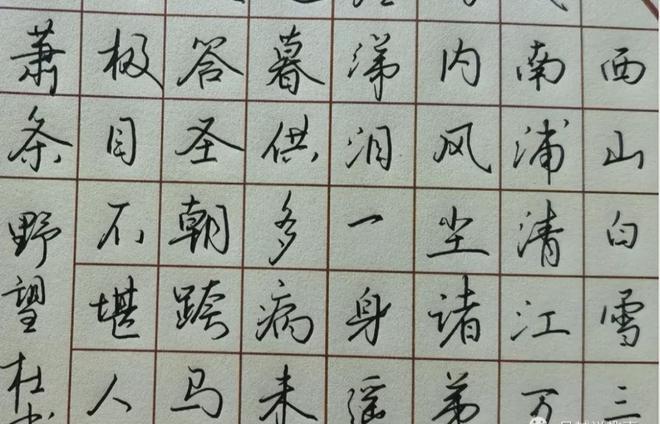 西山白雪三
南浦清江万
内风尘诸弟
涕泪一身遥
暮供多病未
答圣朝跨马
极目不堪人
萧条野望杜